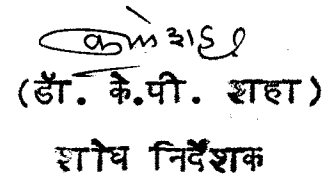 (डॉ. के.पी. शहा)
शोध निर्देशक